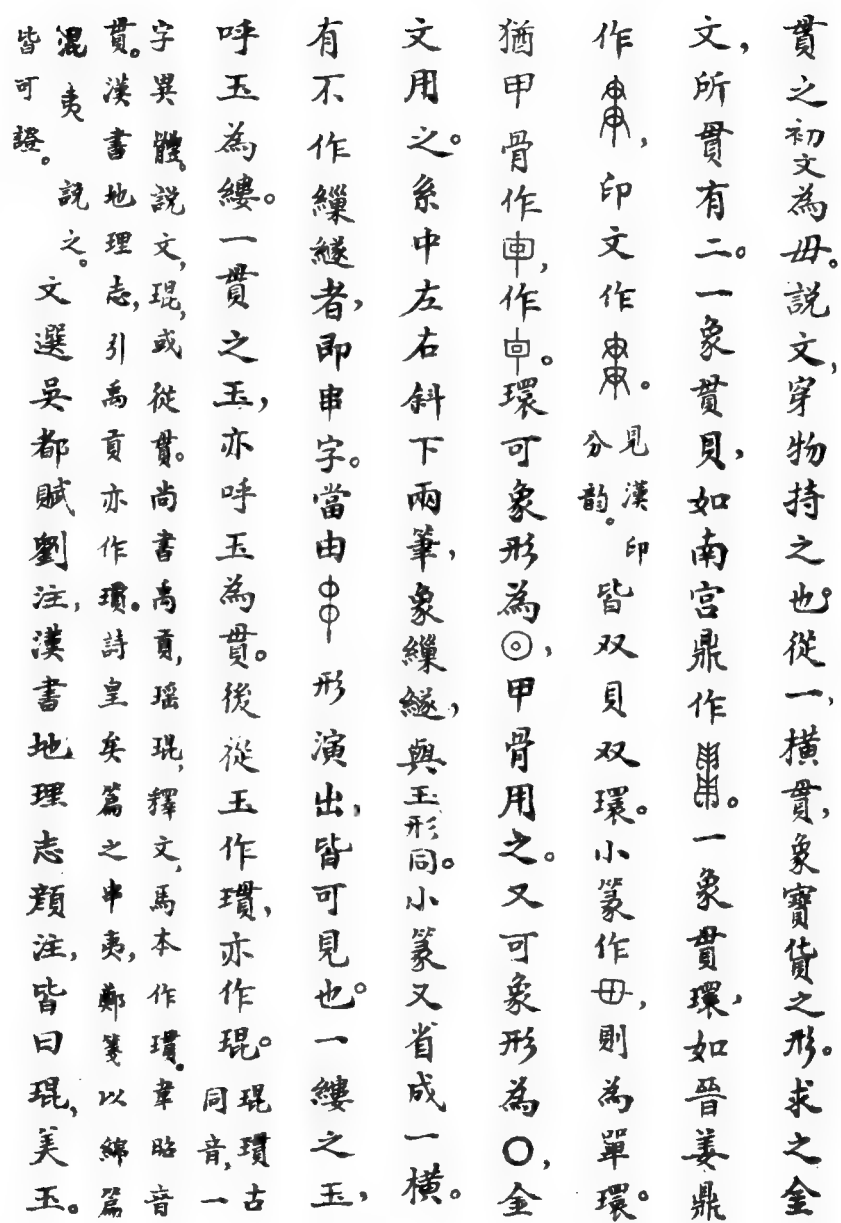 貫之初文為毌。説文，穿物持之也。從一，橫貫，象寶貨之形。求之金
文，所貫有二。一象貫貝，如南宮鼎作。一象貫環，如晉姜鼎
作，印文作。見漢印分韵。皆双貝双環。小篆作毌，則為單環。
猶甲骨作，作。環可象形為◎，甲骨用之。又可象形為〇，金
文用之。系中左右斜下兩筆，象繅繸，與玉形同。小篆又省成一橫。
有不作繅繸者，即串字。當由形演出，皆可見也。一縷之玉，
呼玉為縷。一貫之玉，亦呼玉為貫。後從玉作瓆，亦作琨。琨瓆古同音，一
字異體。説文，琨，或從貫。尚書禹貢，瑶琨，釋文，馬本作瓆。韋昭音
貫。漢書地理志，引禹貢亦作瓆。詩皇矣篇之串夷，鄭箋以綿篇
混夷説之。
皆可證。
文選吳都賦劉注，漢書地理志顔注，皆曰琨，美玉。